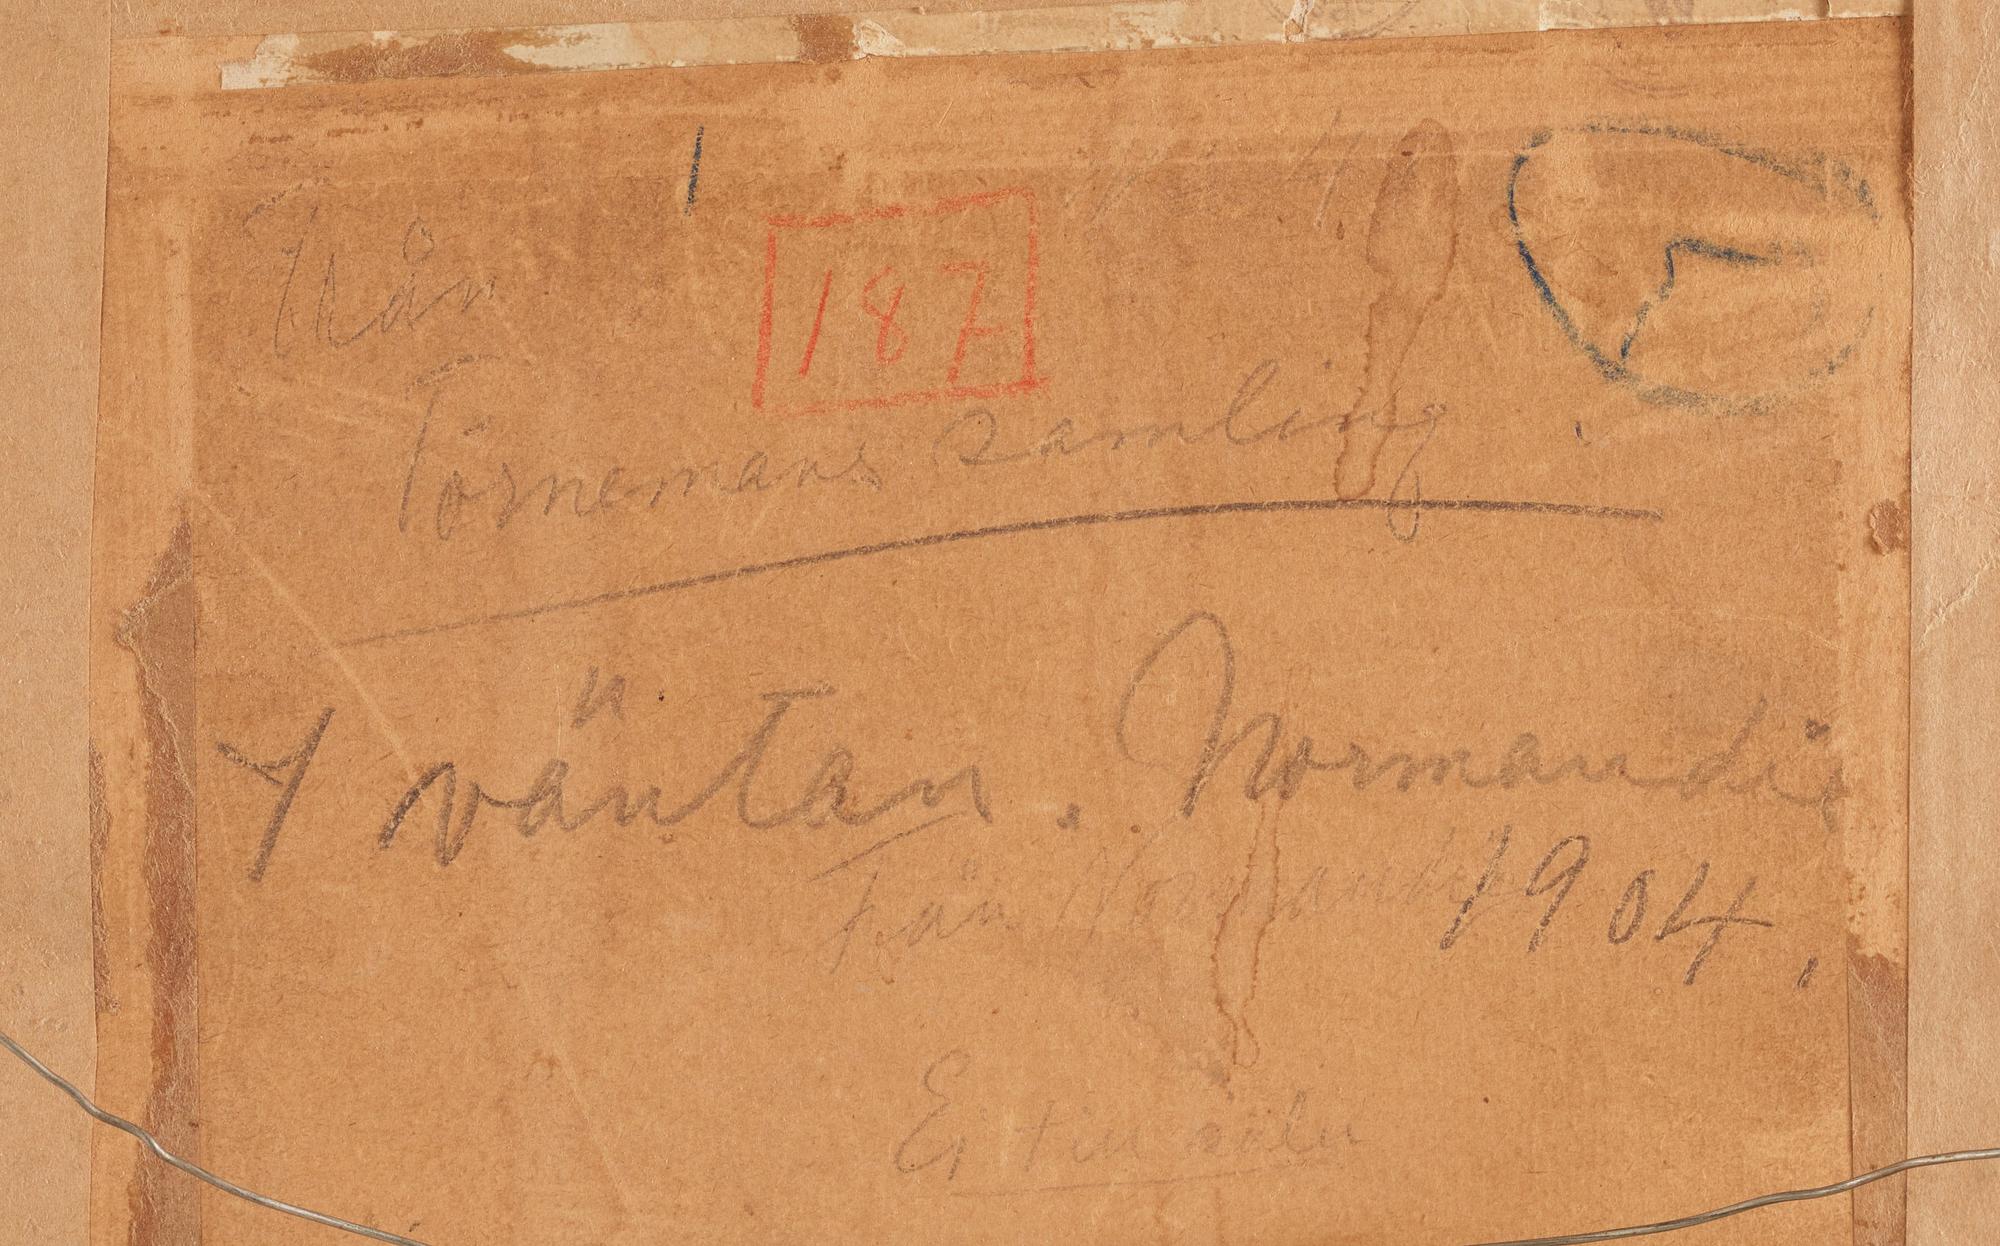 Från
187
Törnemans samling
I väntan. Normandie
Från Normandie
1904.
Ej till salu